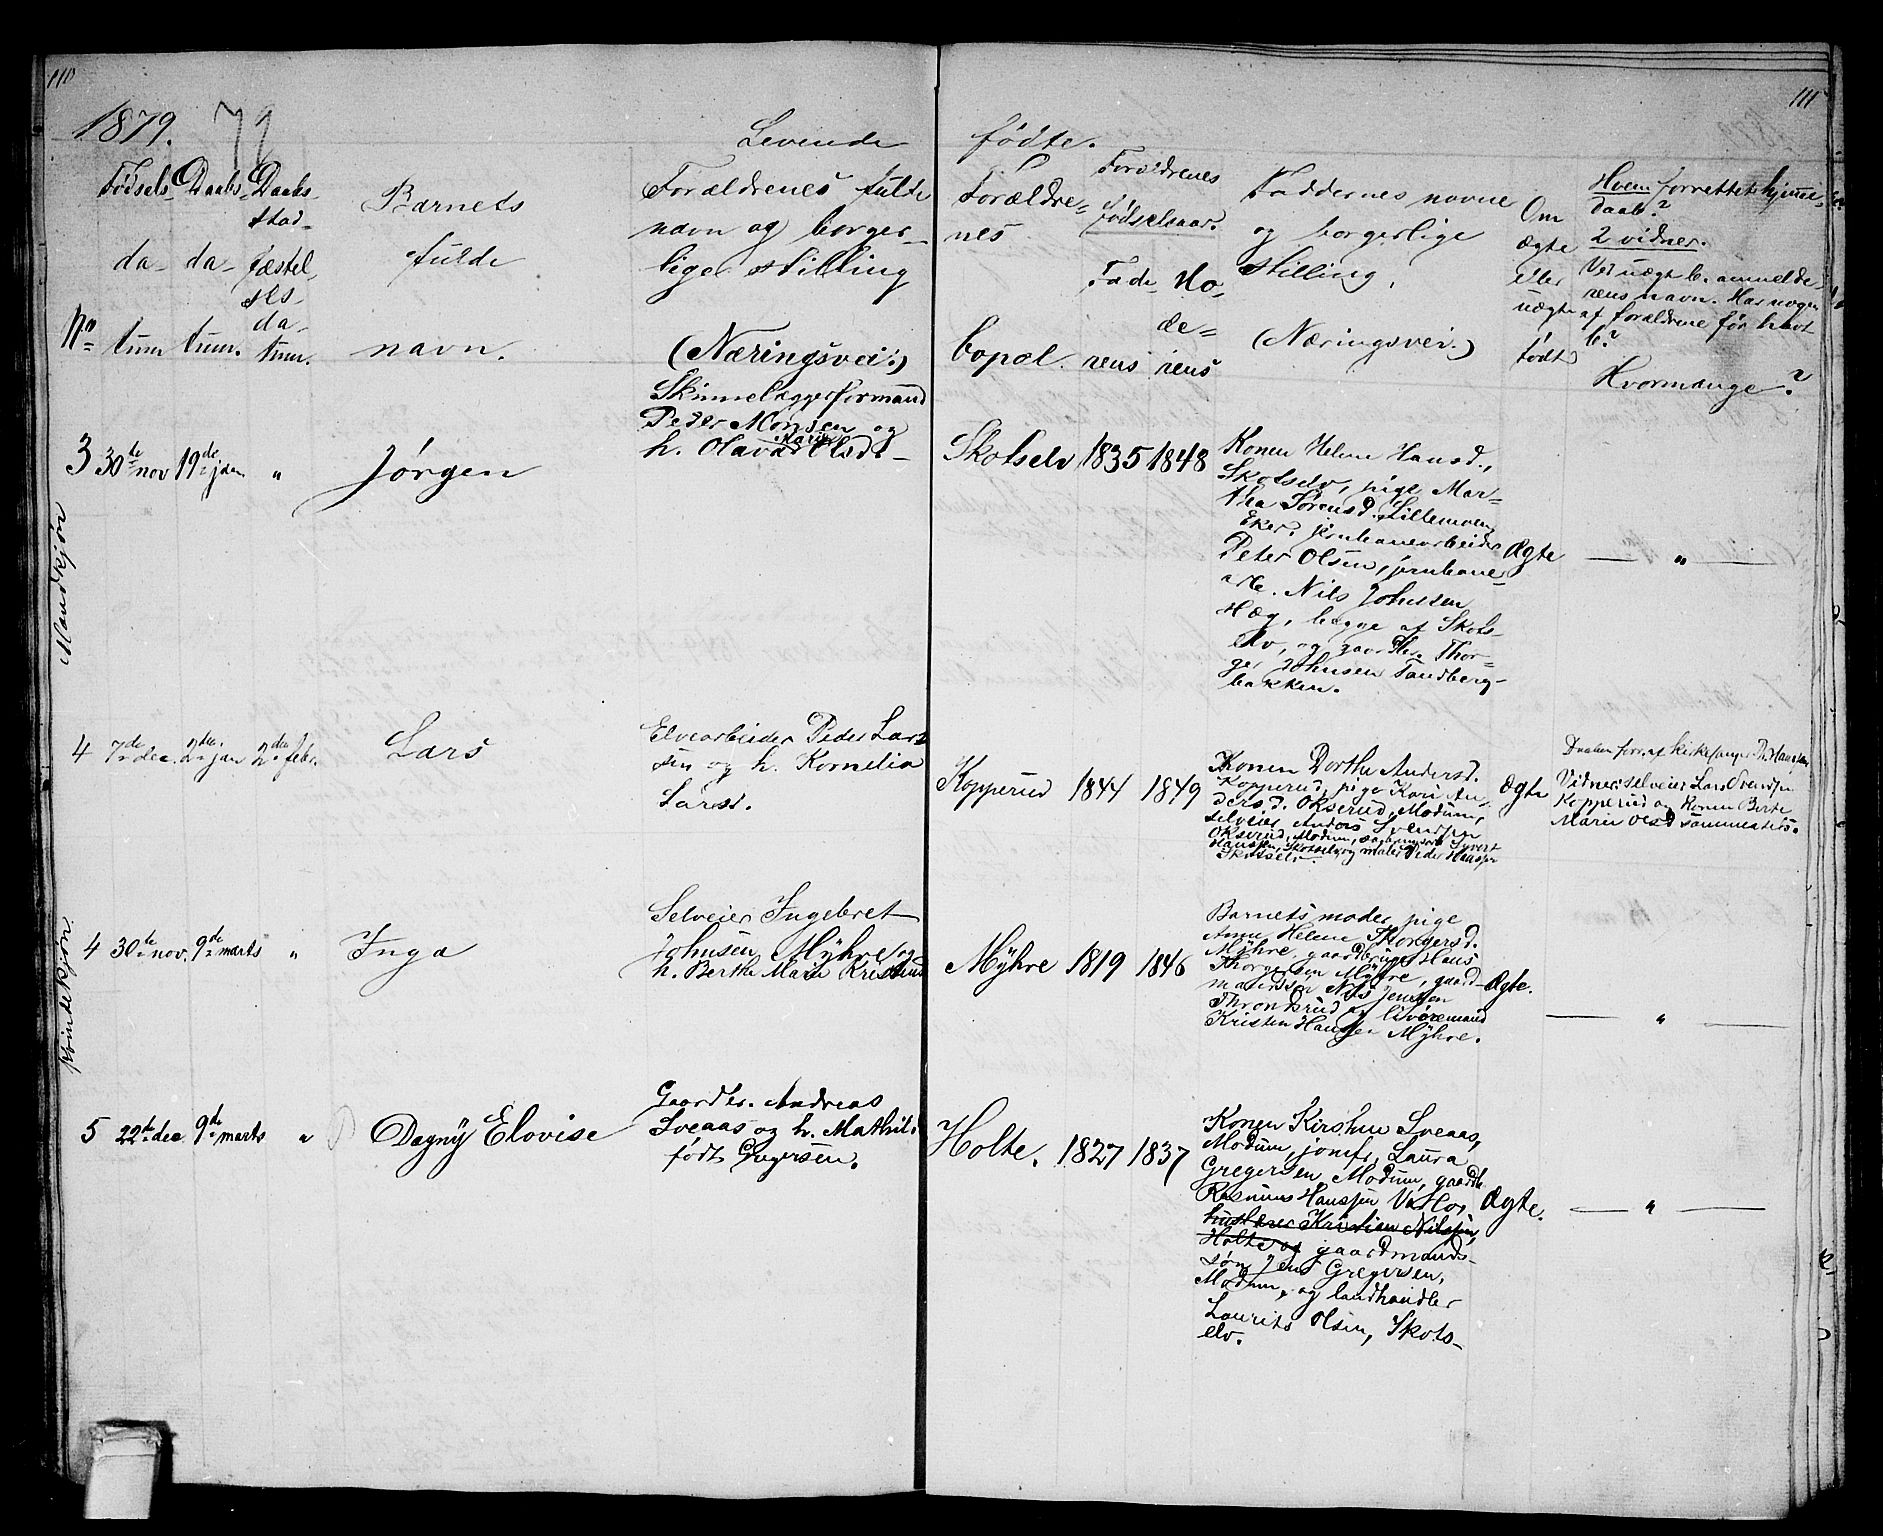 110
111
1879.
72
Levende
fødte.
Fødsels-
da-
tum
Daabs-
da-
tum.
Daabs-
stad-
fæstel-
ses-
da-
tum.
No
Barnets
fulde
navn.
Forældrenes fulde
navn og borger-
lige stilling
(Næringsvei.)
Forældre-
nes
bopæl.
Forældrenes
fødselsaar.
Fade-
rens
Mo-
de-
rens
Faddernes navne
og borgerlige
stilling,
(Næringsvei.)
Om
ægte
eller
uægte
født
Hvem forrettet hjemme-
daab?
2 vidner.
Ved uægt b. anmelde-
rens navn. Har nogen
af forældrene før havt
b?
Hvormange?
Mandkjøn
3 30te nov 19de jan " Jørgen
Skinnelæggerformand
Peder Monsen og
h. Olava Marie Olsd.
Skotselv 1835 1848
Konen Helene Hansd.,
Skotselv, pige Mar-
tha Sørensd. Lillemoen
Eker, jernbanearbeider
Peter Olsen, jernbane-
arb. Nils Johnsen
Hæg, begge af Skots-
elv, og gaardbr. Thor-
ger Johnsen Tandberg-
bakken.
Ægte — " —
4 7de dec. 2den jan 2den febr. Lars
Elvearbeider Peder Lar-
sen og h. Kornelia
Larsd.
Kopperud 1844 1849
Konen Dorthe Andersd.
Kopperud, pige Kari An-
dersd. Okserud, Modum,
selveier Anders Svendsen
Okserud, Modum, Syvert
Hanssen, Skotselv, og maler Peder Hanssen
Skotselv.
Ægte
Daaben forr. af kirkesanger P. Hanssen
Vidner: selveier Lars Svendsen
Kopperud og konen Berte
Marie Olsd sammesteds.
Kvindekjøn.
4 30te nov. 9de marts " Inga
Selveier Ingebret
Johnsen Mÿhre og
h. Berthe Marie Kristensd
Mÿhre 1819 1846
Barnets moder, pige
Anne Helene Thorgersd.
Mÿhre, gaardbruger Hans
Thorgersen Mÿhre, gaard-
mandssøn Nils Jenssen
Throndsrud og
Kristen Hanssen Mÿhre.
Ægte.
— " —
5 22de dec 9de marts " Dagnÿ Elovise
Gaardbr. Andreas
Sveaas og h. Mathilde
født Gregersen.
Holte. 1827 1837
Konen Kirstine Sveaas,
Modum, jomfr. Laura
Gregersen, Modum, gaardbr.
Rasmus Hanssen
huslærer Kristian Nilssen,
Holte og gaardmands-
søn Jens Gregersen,
Modum, og landhandler
Laurits Olsen, Skots-
elv.
Ægte. — " —